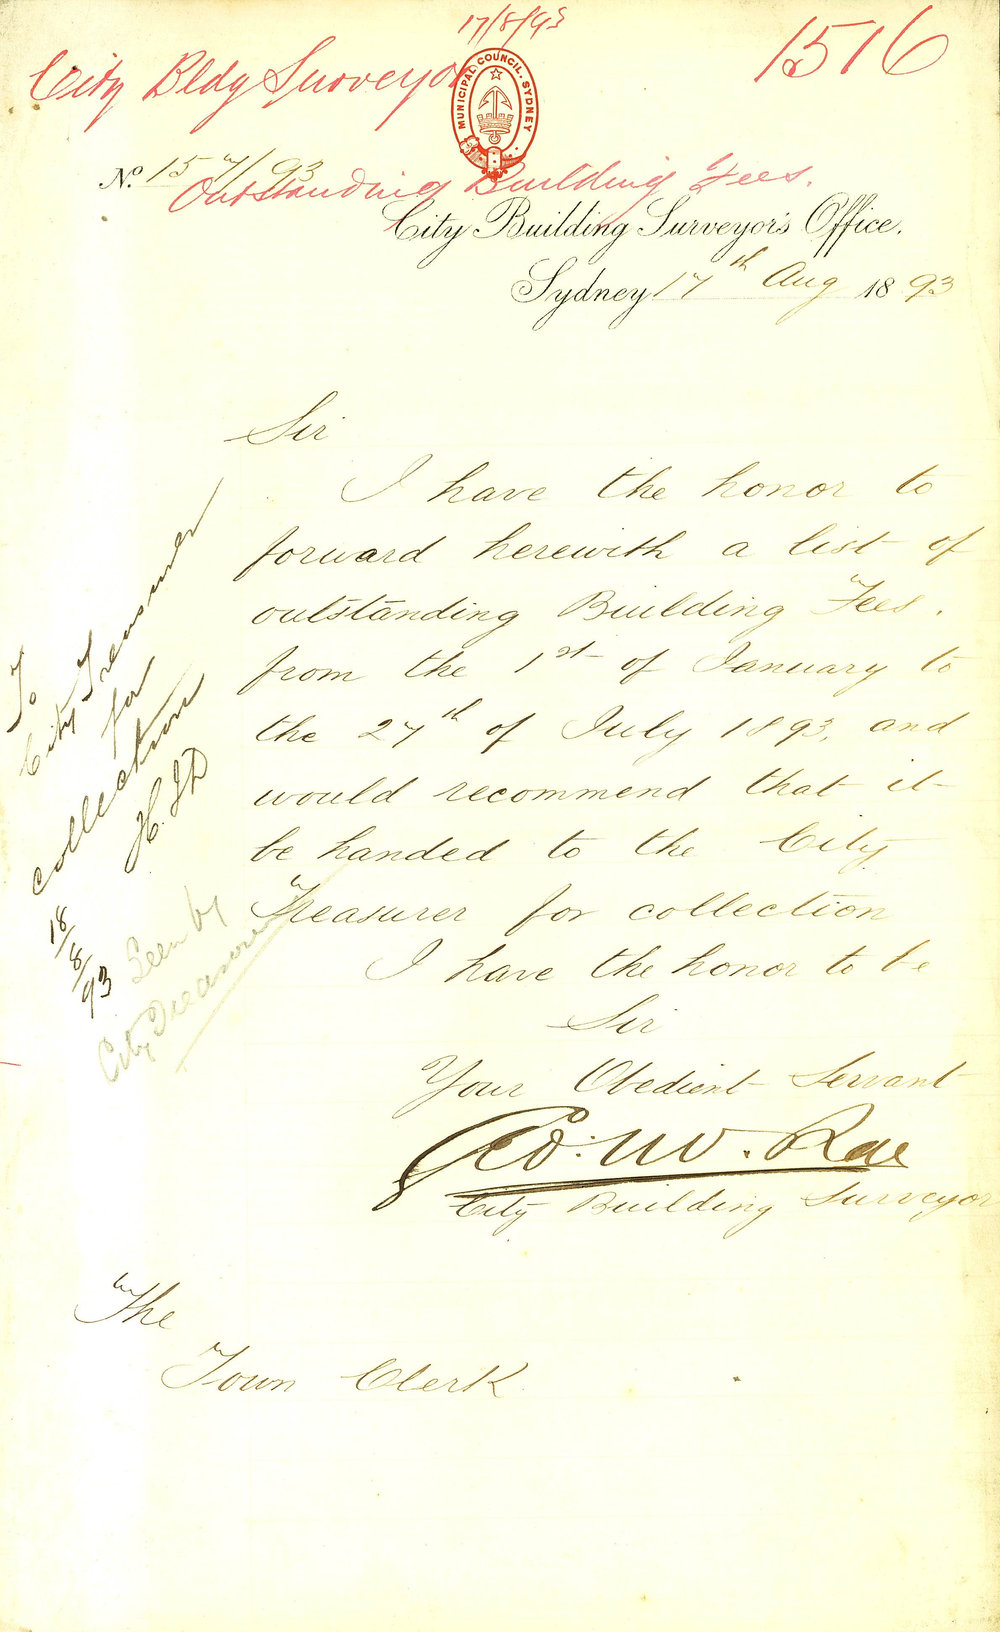 17/8/93
1516
City Bldg Surveyor
MUNICIPAL COUNCIL. SYDNEY
No. 157/93
Outstanding Building Fees.
City Building Surveyor's Office.
Sydney 17th Aug 1893
Sir
I have the honor to
forward herewith a list of
outstanding Building Fees.
from the 1st of January to
the 27th of July 1893, and
would recommend that it
be handed to the City
Treasurer for collection
I have the honor to be
Sir
Your Obedient Servant
Geo. W. Rae
City Building Surveyor
The
Town Clerk
To
City Treasurer
for
collection
H.J.D
18/8/93
Seen by
City Treasurer